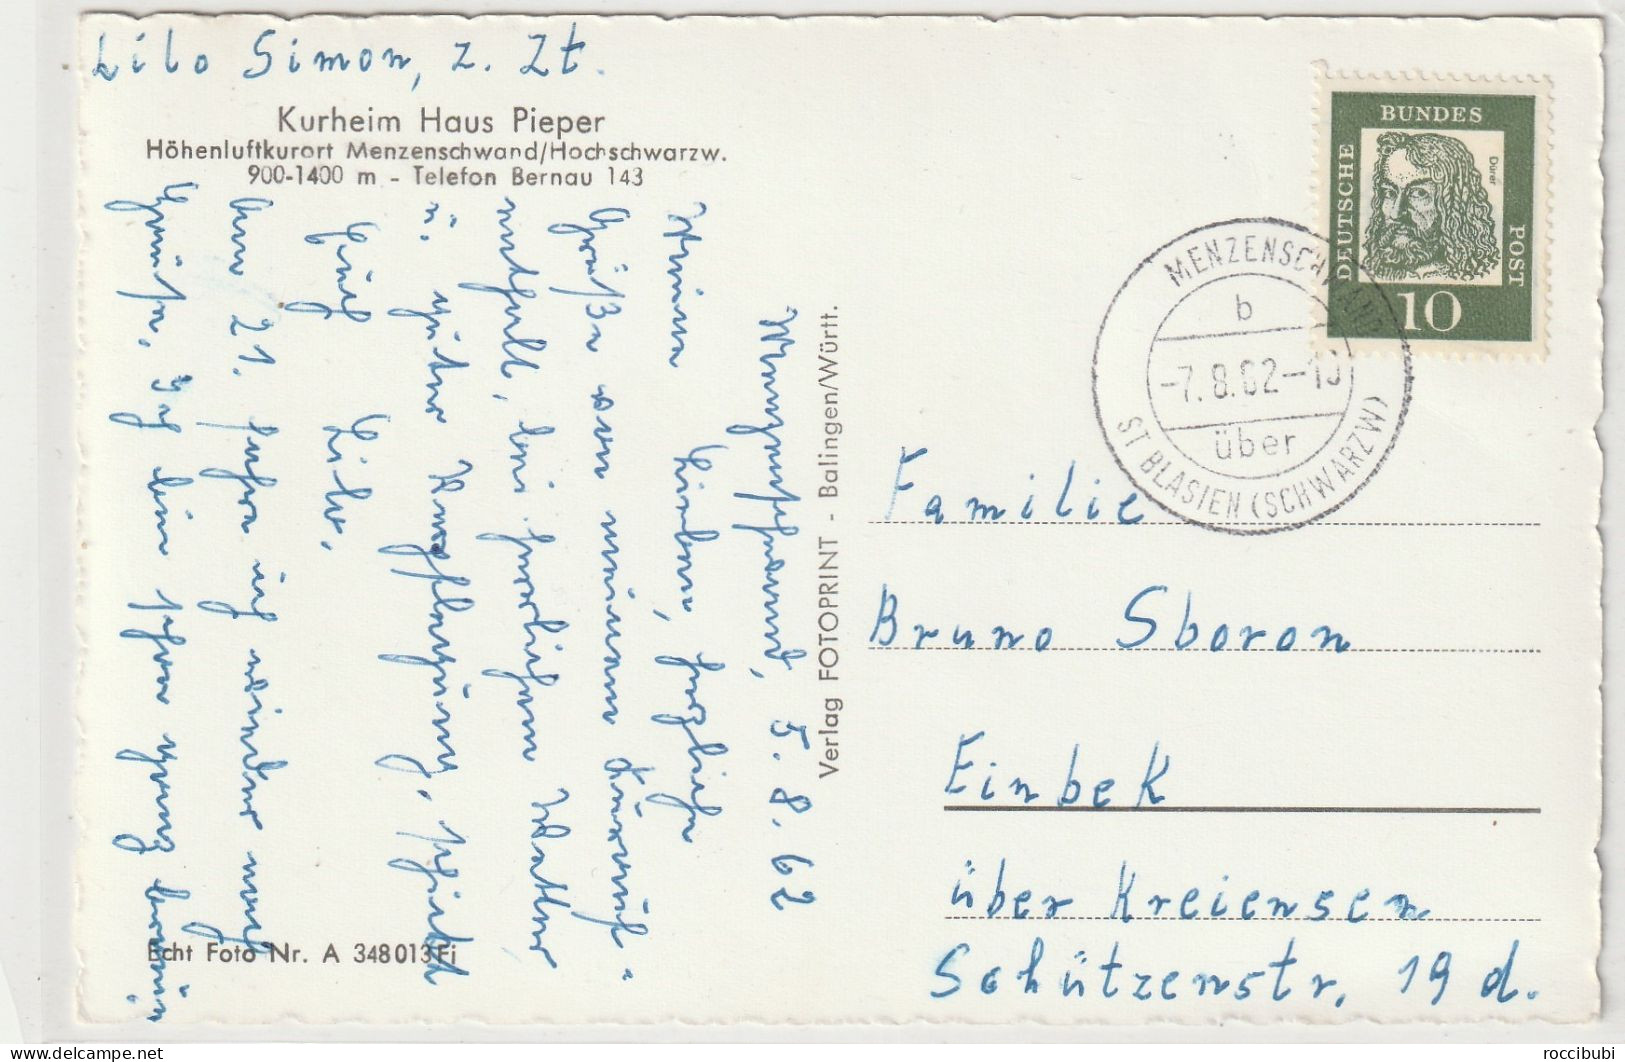 Lilo Simon, z. Zt.
Kurheim Haus Pieper
Höhenluftkurort Menzenschwand/Hochschwarzw.
900-1400 m - Telefon Bernau 143
Menzenschwand, 5. 8. 62
Meine Lieben, herzliche
Grüße von meinem Kurauf-
enthalt, bei herrlichem Wetter
u. guter Verpflegung, schickt
Euch Lilo.
Am 21. fahre ich wieder nach
Hause. Ich bin schon ganz braun
Echt Foto Nr. A 348013 Fi
Verlag FOTOPRINT - Balingen/Württ.
DEUTSCHE
BUNDES
POST
Dürer
10
MENZENSCHWAND
b
-7.8.62-10
über
ST BLASIEN (SCHWARZW)
Familie
Bruno Sboron
Einbek
über Kreiensen
Schützenstr. 19 d.
roccibubi
www.delcampe.net